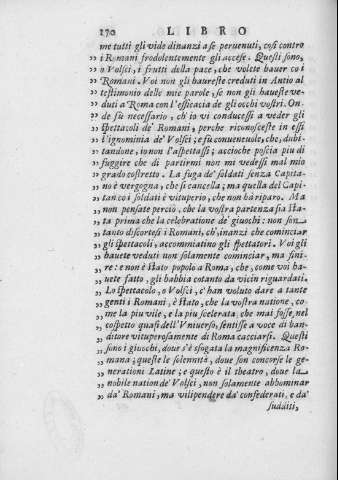 170 LIBRO
me tutti gli vide dinanzi a se peruenuti, così contro
„ i Romani frodolentemente gli accese. Questi sono,
„ o Volsci, i frutti della pace, che volete hauer co i
„ Romani. Voi non gli haureste creduti in Antio al
„ testimonio delle mie parole, se non gli haueste ve-
„ duti a Roma con l'efficacia de gli occhi vostri. On-
„ de fù necessario, ch io vi conducessi a veder gli
„ spettacoli de' Romani, perche riconosceste in essi
„ l'ignominia de' Volsci; e fù conueneuole, che, dubi-
„ tandone, io non l'aspettassi; accioche poscia piu di
„ fuggire che di partirmi non mi vedessi mal mio
„ grado costretto. La fuga de' soldati senza Capita-
„ no è vergogna, che si cancella; ma quella del Capi-
„ tan co i soldati è vituperio, che non ha riparo. Ma
„ non pensate perciò, che la vostra partenza sia sta-
„ ta prima che la celebratione de' giuochi: non son
„ tanto discortesi i Romani, ch', inanzi che cominciar
„ gli spettacoli, accommiatino gli spettatori. Voi gli
„ hauete veduti non solamente cominciar, ma fini-
„ re: e non è stato popolo a Roma, che, come voi ha-
„ uete fatto, gli habbia cotanto da vicin riguardati.
„ Lo spettacolo, o Volsci, c'han voluto dare a tante
„ genti i Romani, è stato, che la vostra natione, co-
„ me la piu vile, e la piu scelerata, che mai fosse, nel
„ cospetto quasi dell'Vniuerso, sentisse a voce di ban-
„ ditore vituperosamente di Roma cacciarsi. Questi
„ sono i giuochi, doue s'è sfogata la magnificenza Ro-
„ mana; queste le solennità, doue son concorse le ge-
„ nerationi Latine; e questo è il theatro, doue la
„ nobile nation de' Volsci, non solamente abbominar
„ da' Romani, ma vilipendere da' confederati, e da'
sudditi,